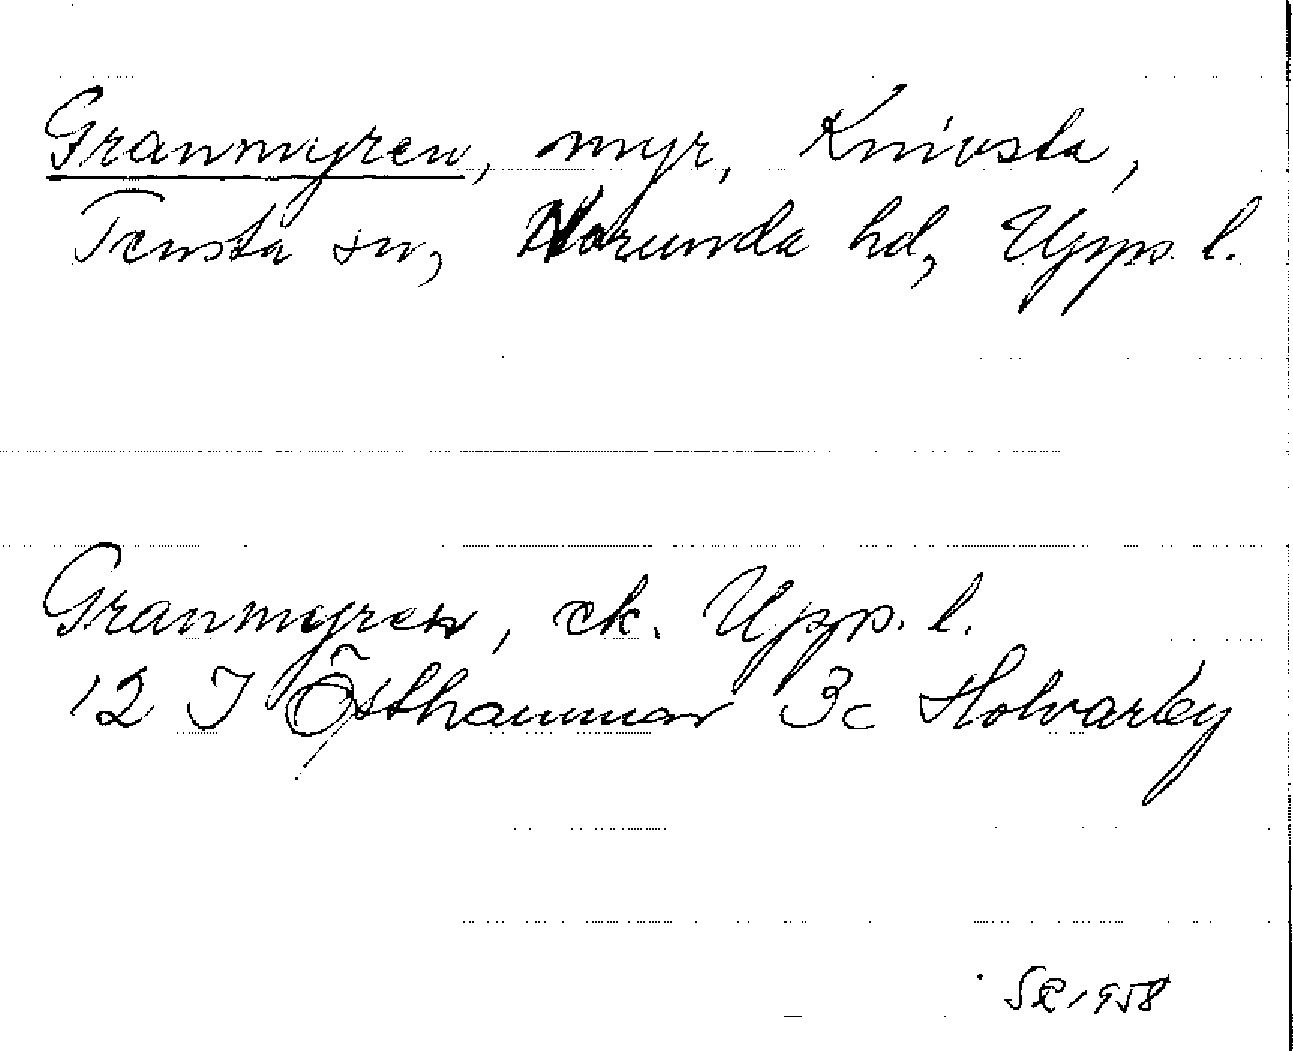 Granmyren, myr, Knivsta,
Tensta sn, Norunda hd, Upps. l.
Granmyren, ek. Upps. l.
12 I Östhammar 3c Holvarby
SR 1958